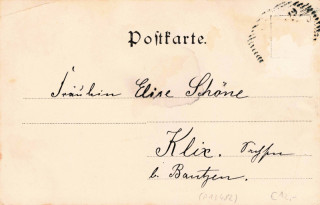 Postkarte.
Fräulein Elise Schöne
Klix. Sachsen
b. Bautzen.